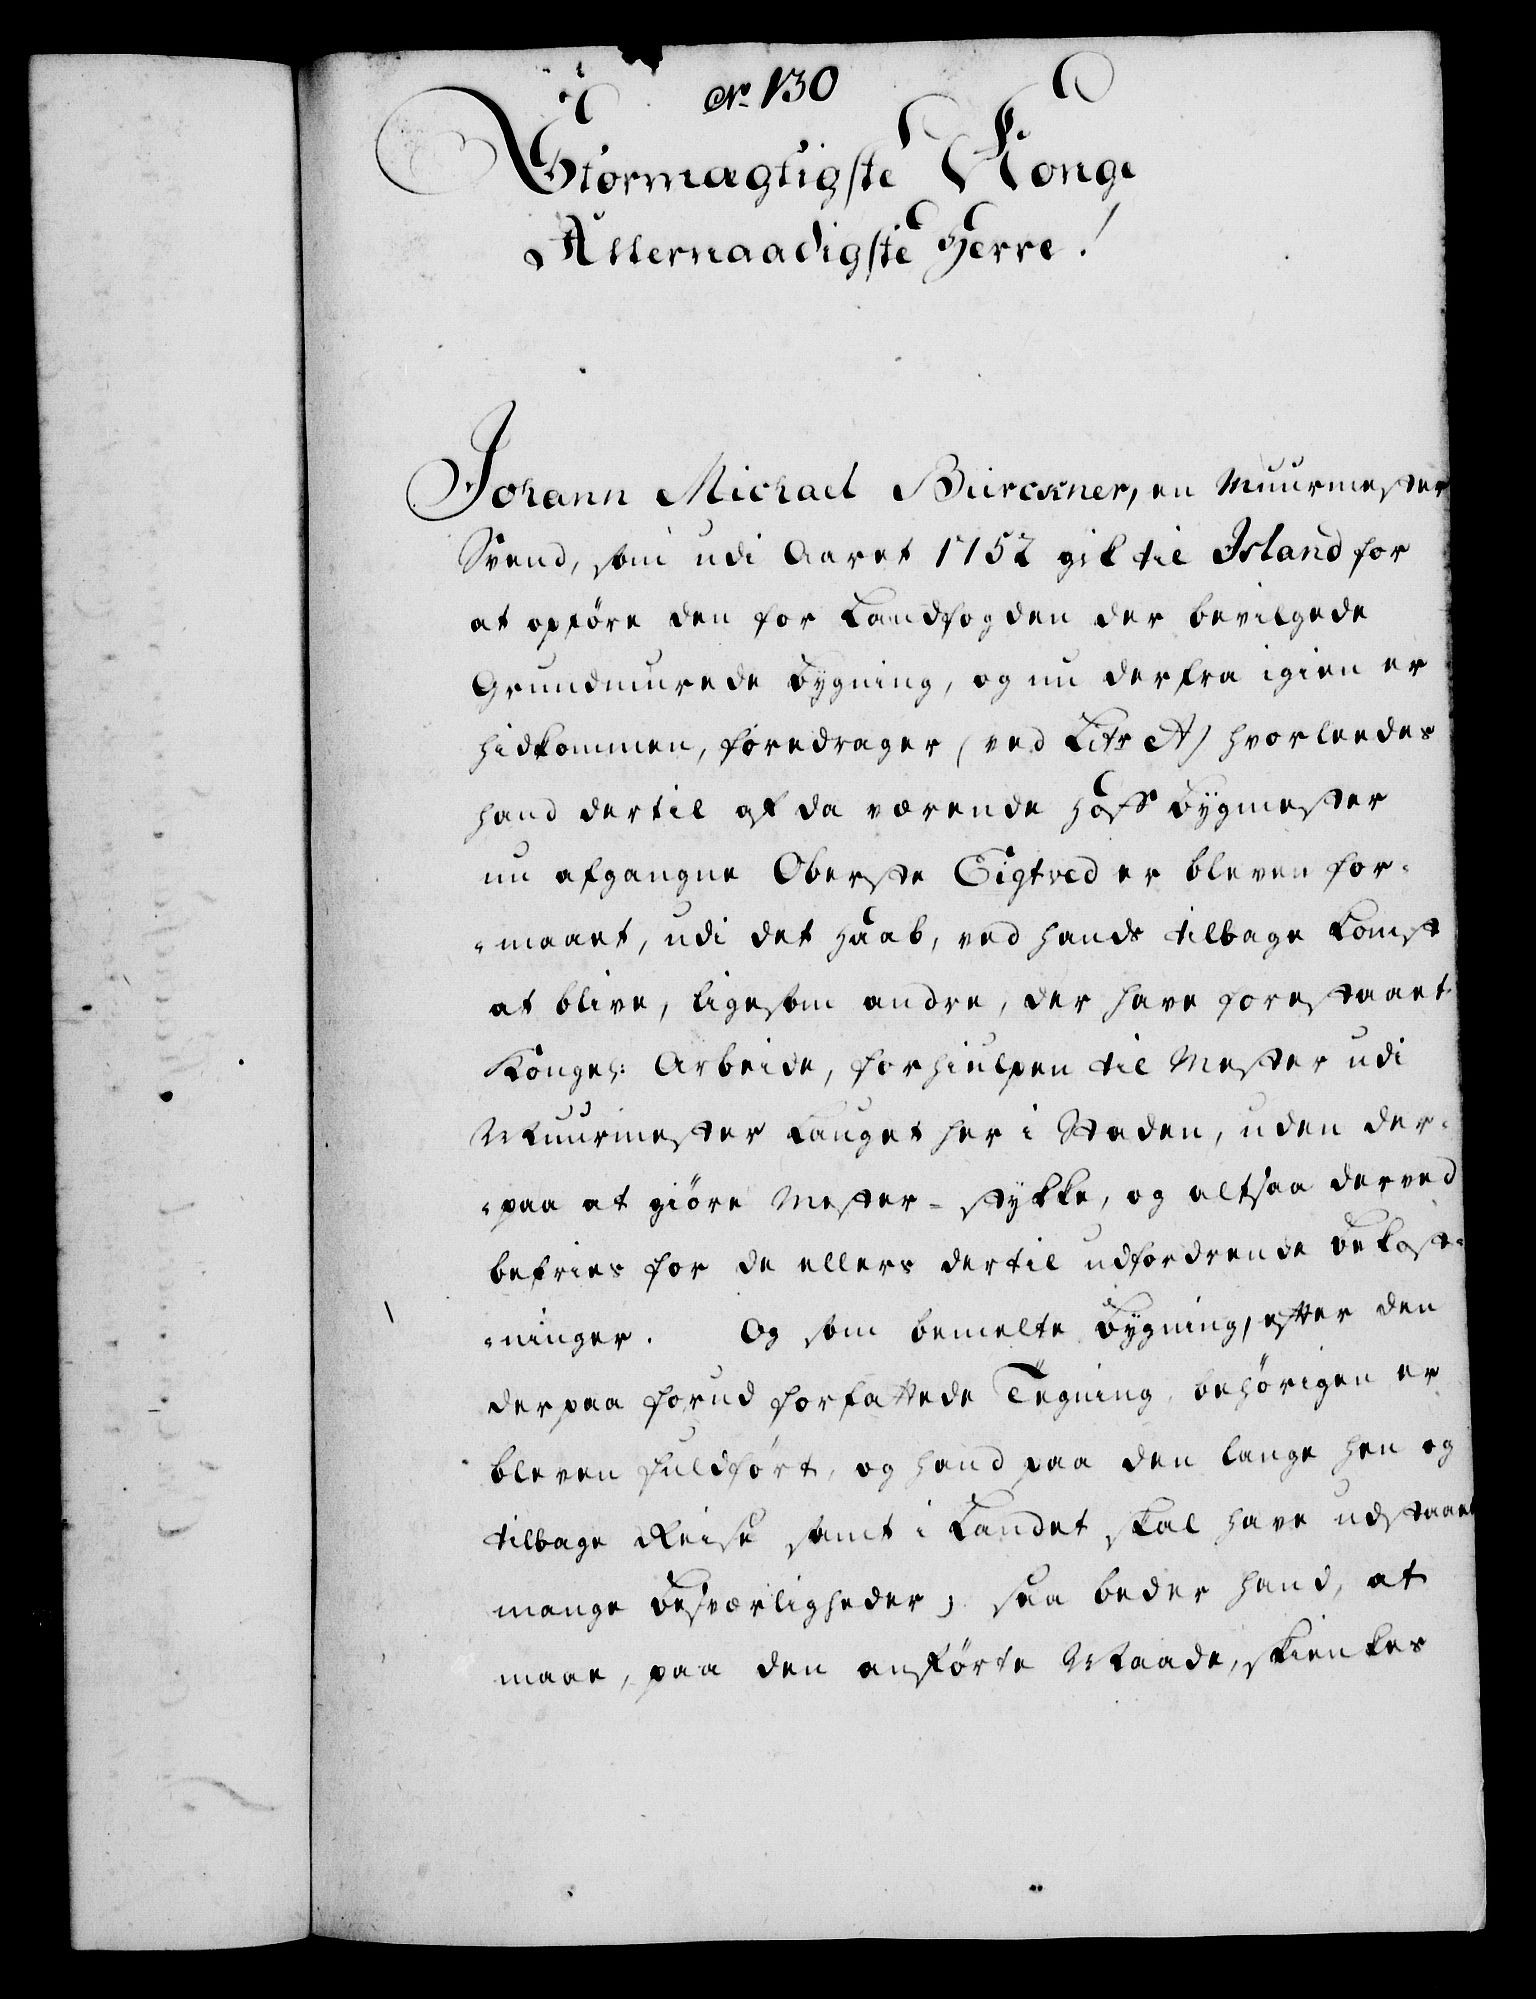 No. 130
Stormægtigste Konge
Allernaadigste Herre!
Johann Michael Bürckner, en Muurmester
Svend, som udi Aaret 1752 gik til Island for
at opføre den for Landfogden der bevilgede
Grundmurede Bygning, og nu derfra igien er
hidkommen, foredrager (ved Litr A) hvorleedes
hand dertil af da værende Hoff Bygmester
nu afgangne Oberste Eigtved er bleven for-
-maaet, udi det Haab, ved hands tilbage komst
at blive, ligesom andre, der have forestaaet
Kongel: Arbeide, forhiulpen til Mester udi
Muurmester Lauget her i Staden, uden der-
-paa at giøre Mester-stykke, og altsaa derved
befries for de ellers dertil udfordrende Bekost-
-ninger. Og som bemelte Bygning, efter den
derpaa forud forfattede Tegning, behørigen er
bleven fuldført, og hand paa den lange hen og
tilbage Reise samt i Landet skal have udstaaet
mange Besværligheder; saa beder hand, at
maae, paa den anførte Maade, skienkes